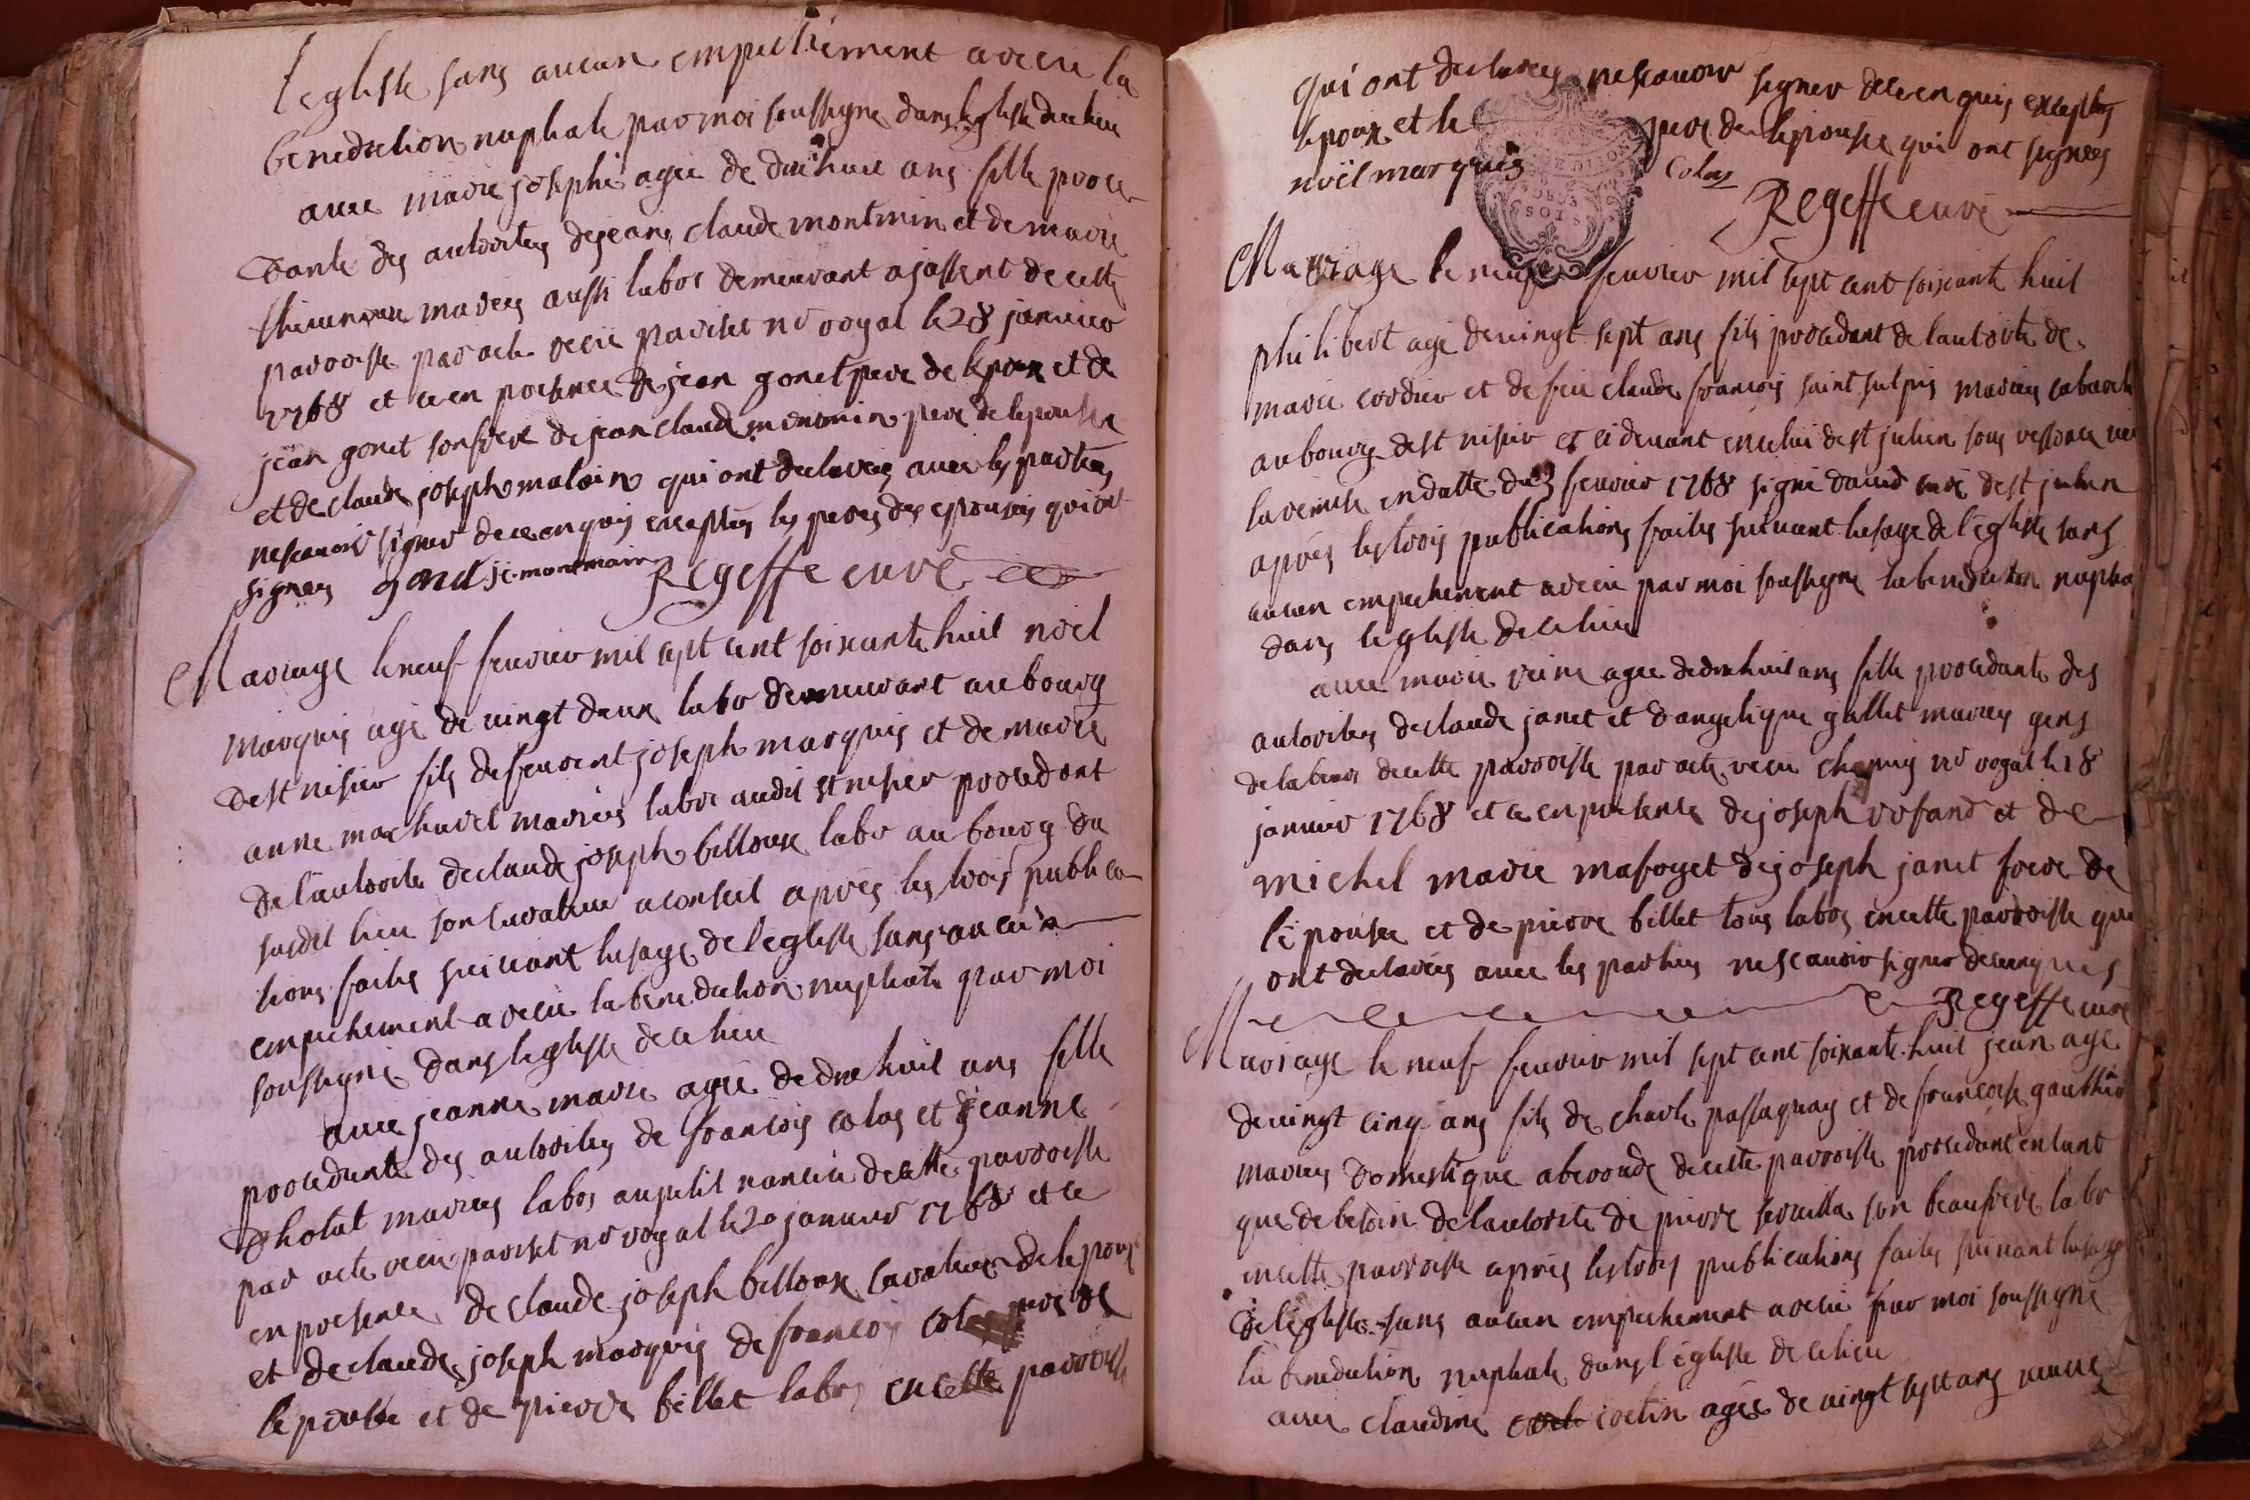 l'eglise sans aucun empechement a receu la
benediction nuptiale par moi soussigne dans leglise de ce lieu
avec marie josephe agée de dixhuit ans fille proce
dante des autorites de jean claude montmin et de marie
mariés aussi labor demeurant a de cette
parroisse par acte receu pariset nre royal le 28 janvier
1768 et ce en presence de jean gonet pere de lepoux et de
jean gonet son frere de jean claude monmin pere de lepouse
et de claude joseph qui ont declarés avec les parties
nescavoir signer de ce enquis exceptés les peres des epousés qui ont
signés gonet Regeffe curé
Mariage le neuf fevrier mil sept cent soixante huit noël
marquis agé de vingt deux labor demeurant au bourg
de st nisier fils de feu vincent joseph marquis et de marie
anne machurel mariés labor audit st nisier procedant
de l'autorite de claude joseph billoux labor au bourg du
susdit lieu son curateur a conseil après les trois publica
tions faites suivant lusage de leglise sans aucun
empechement a receu la benediction nuptiale par moi
soussigné dans leglise de ce lieu
avec jeanne marie agée de dixhuit ans fille
procedante des autorites de francois colas et de jeanne
thotat mariés labor au petit nanciu de cette parroisse
par acte receu pariset nre royal le 20 janvier 1768 et ce
en presence de claude joseph billoux curateur de lepoux
et de claude joseph marquis de francois colas pere de
lepouse et de pierre billet labor en cette parroisse
qui ont declarés nescavoir signer de ce enquis exceptés
lepoux et le pere de lepouse qui ont signés
noël marquis Colas Regeffe curé
Mariage le neuf fevrier mil sept cent soixante huit
philibert agé de vingt sept ans fils procedant de lautorite de
marie cordier et de feu claude francois saint sulpis mariés
au bourg de st nisier et ci devant en celui de st julien sous
la remise en datte du 3 fevrier 1768 signé david curé de st julien
après les trois publications faites suivant lusage de l'eglise sans
aucun empechement a receu par moi soussigne la benediction nuptia
dans leglise de ce lieu
avec marie reine agée de dixhuit ans fille procedante des
autorites de claude janet et d'angelique gallet mariés gens
de labeur de cette parroisse par acte receu nre royal le 18
janvier 1768 et ce en presence de joseph et de
michel marie et de joseph janet frere de
lepouse et de pierre billet tous labor en cette parroisse qui
ont declarés avec les parties nescavoir signer de ce enquis
Regeffe curé
Mariage le neuf fevrier mil sept cent soixante huit jean agé
de vingt cinq ans fils de charle passaquay et de francoise gauthier
mariés domestique a beroude de cette parroisse procedant en tant
que de besoin de lautorite de pierre son beaufrere labor
en cette parroisse après les trois publications faites suivant lusage
de leglise sans aucun empechement a receu par moi soussigne
la benediction nuptiale dans l'eglise de ce lieu
avec claudine agée de vingt sept ans veuve